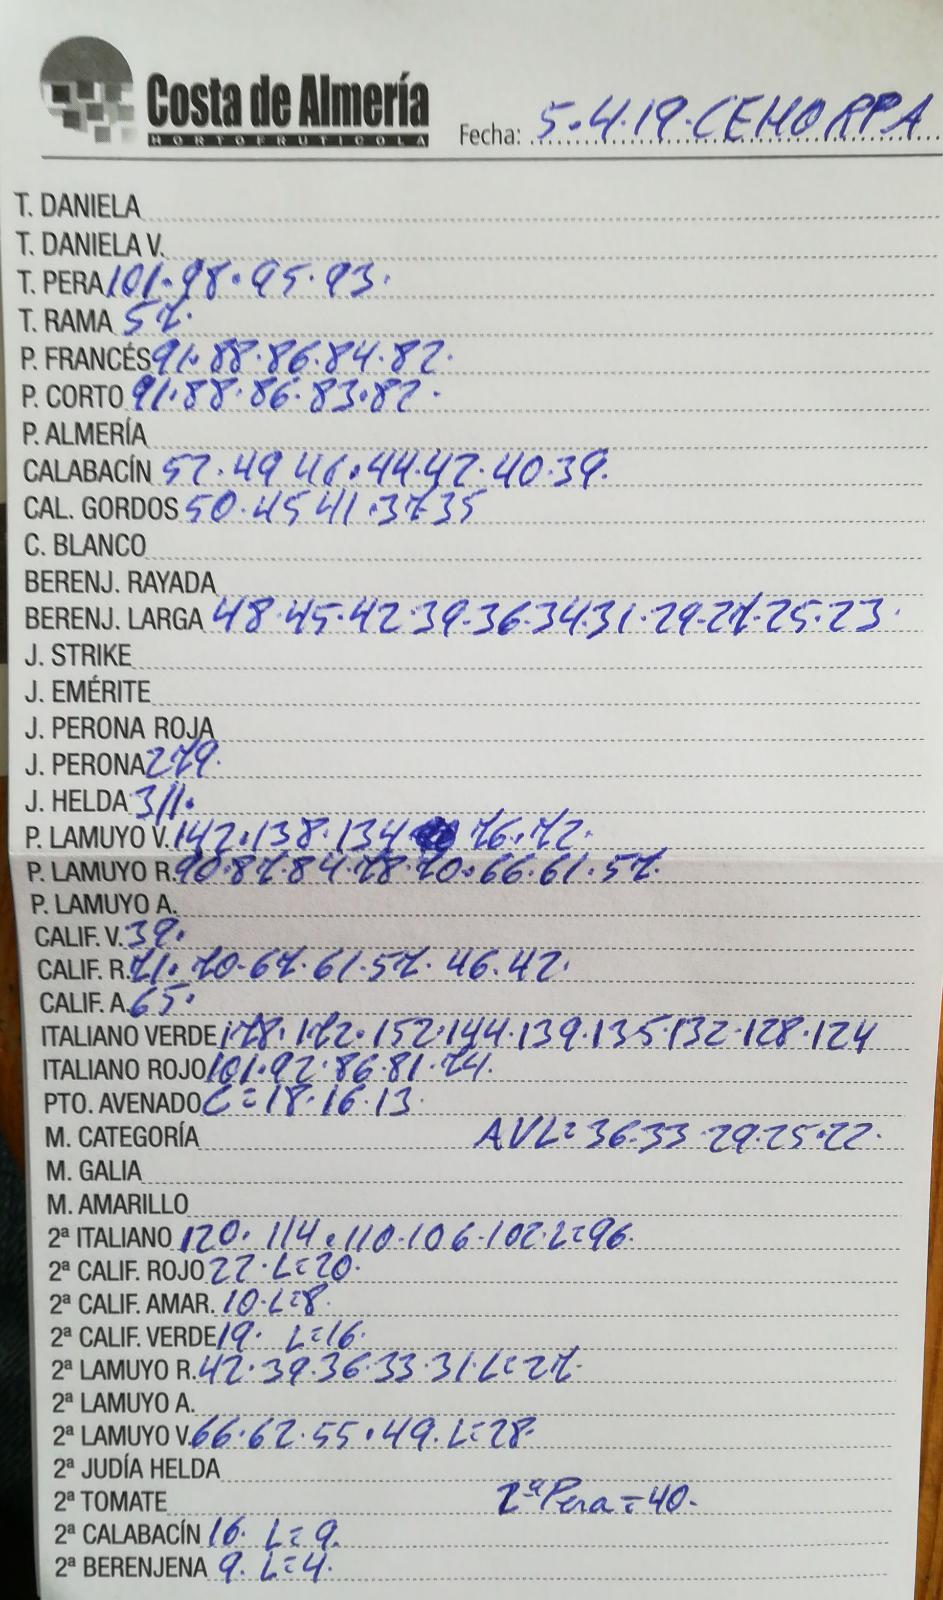 Costa de Almería
HORTOFRUTICOLA
Fecha: 5.4.19.CEHORPA
T. DANIELA
T. DANIELA V.
T. PERA 101.98.95.93.
T. RAMA 57.
P. FRANCÉS 91.88.86.84.82.
P. CORTO 91.88.86.83.82.
P. ALMERÍA
CALABACÍN 52.49 46.44.42.40.39.
CAL. GORDOS 50.45 41.37 35
C. BLANCO
BERENJ. RAYADA
BERENJ. LARGA 48.45.42.39.36.34.31.29.27.25.23.
J. STRIKE
J. EMÉRITE
J. PERONA ROJA
J. PERONA 279.
J. HELDA 311.
P. LAMUYO V. 142.138.134 76.72.
P. LAMUYO R. 90.87.84.78.70.66.61.57.
P. LAMUYO A.
CALIF. V. 39.
CALIF. R. 71.70.67.61.57.46.42.
CALIF. A. 65.
ITALIANO VERDE 178.172.152.144.139.135.132.128.124
ITALIANO ROJO 101.92.86.81.74.
PTO. AVENADO C=18.16.13.
M. CATEGORÍA AVL=36.33 29.25.22.
M. GALIA
M. AMARILLO
2ª ITALIANO 120.114.110.106.102.L=96.
2ª CALIF. ROJO 22.L=20.
2ª CALIF. AMAR. 10.L=8.
2ª CALIF. VERDE 19. L=16.
2ª LAMUYO R. 42.39.36.33.31.L=27.
2ª LAMUYO A.
2ª LAMUYO V. 66.62.55.49.L=28.
2ª JUDÍA HELDA
2ª TOMATE 2ª Pera=40.
2ª CALABACÍN 16. L=9.
2ª BERENJENA 9. L=4.